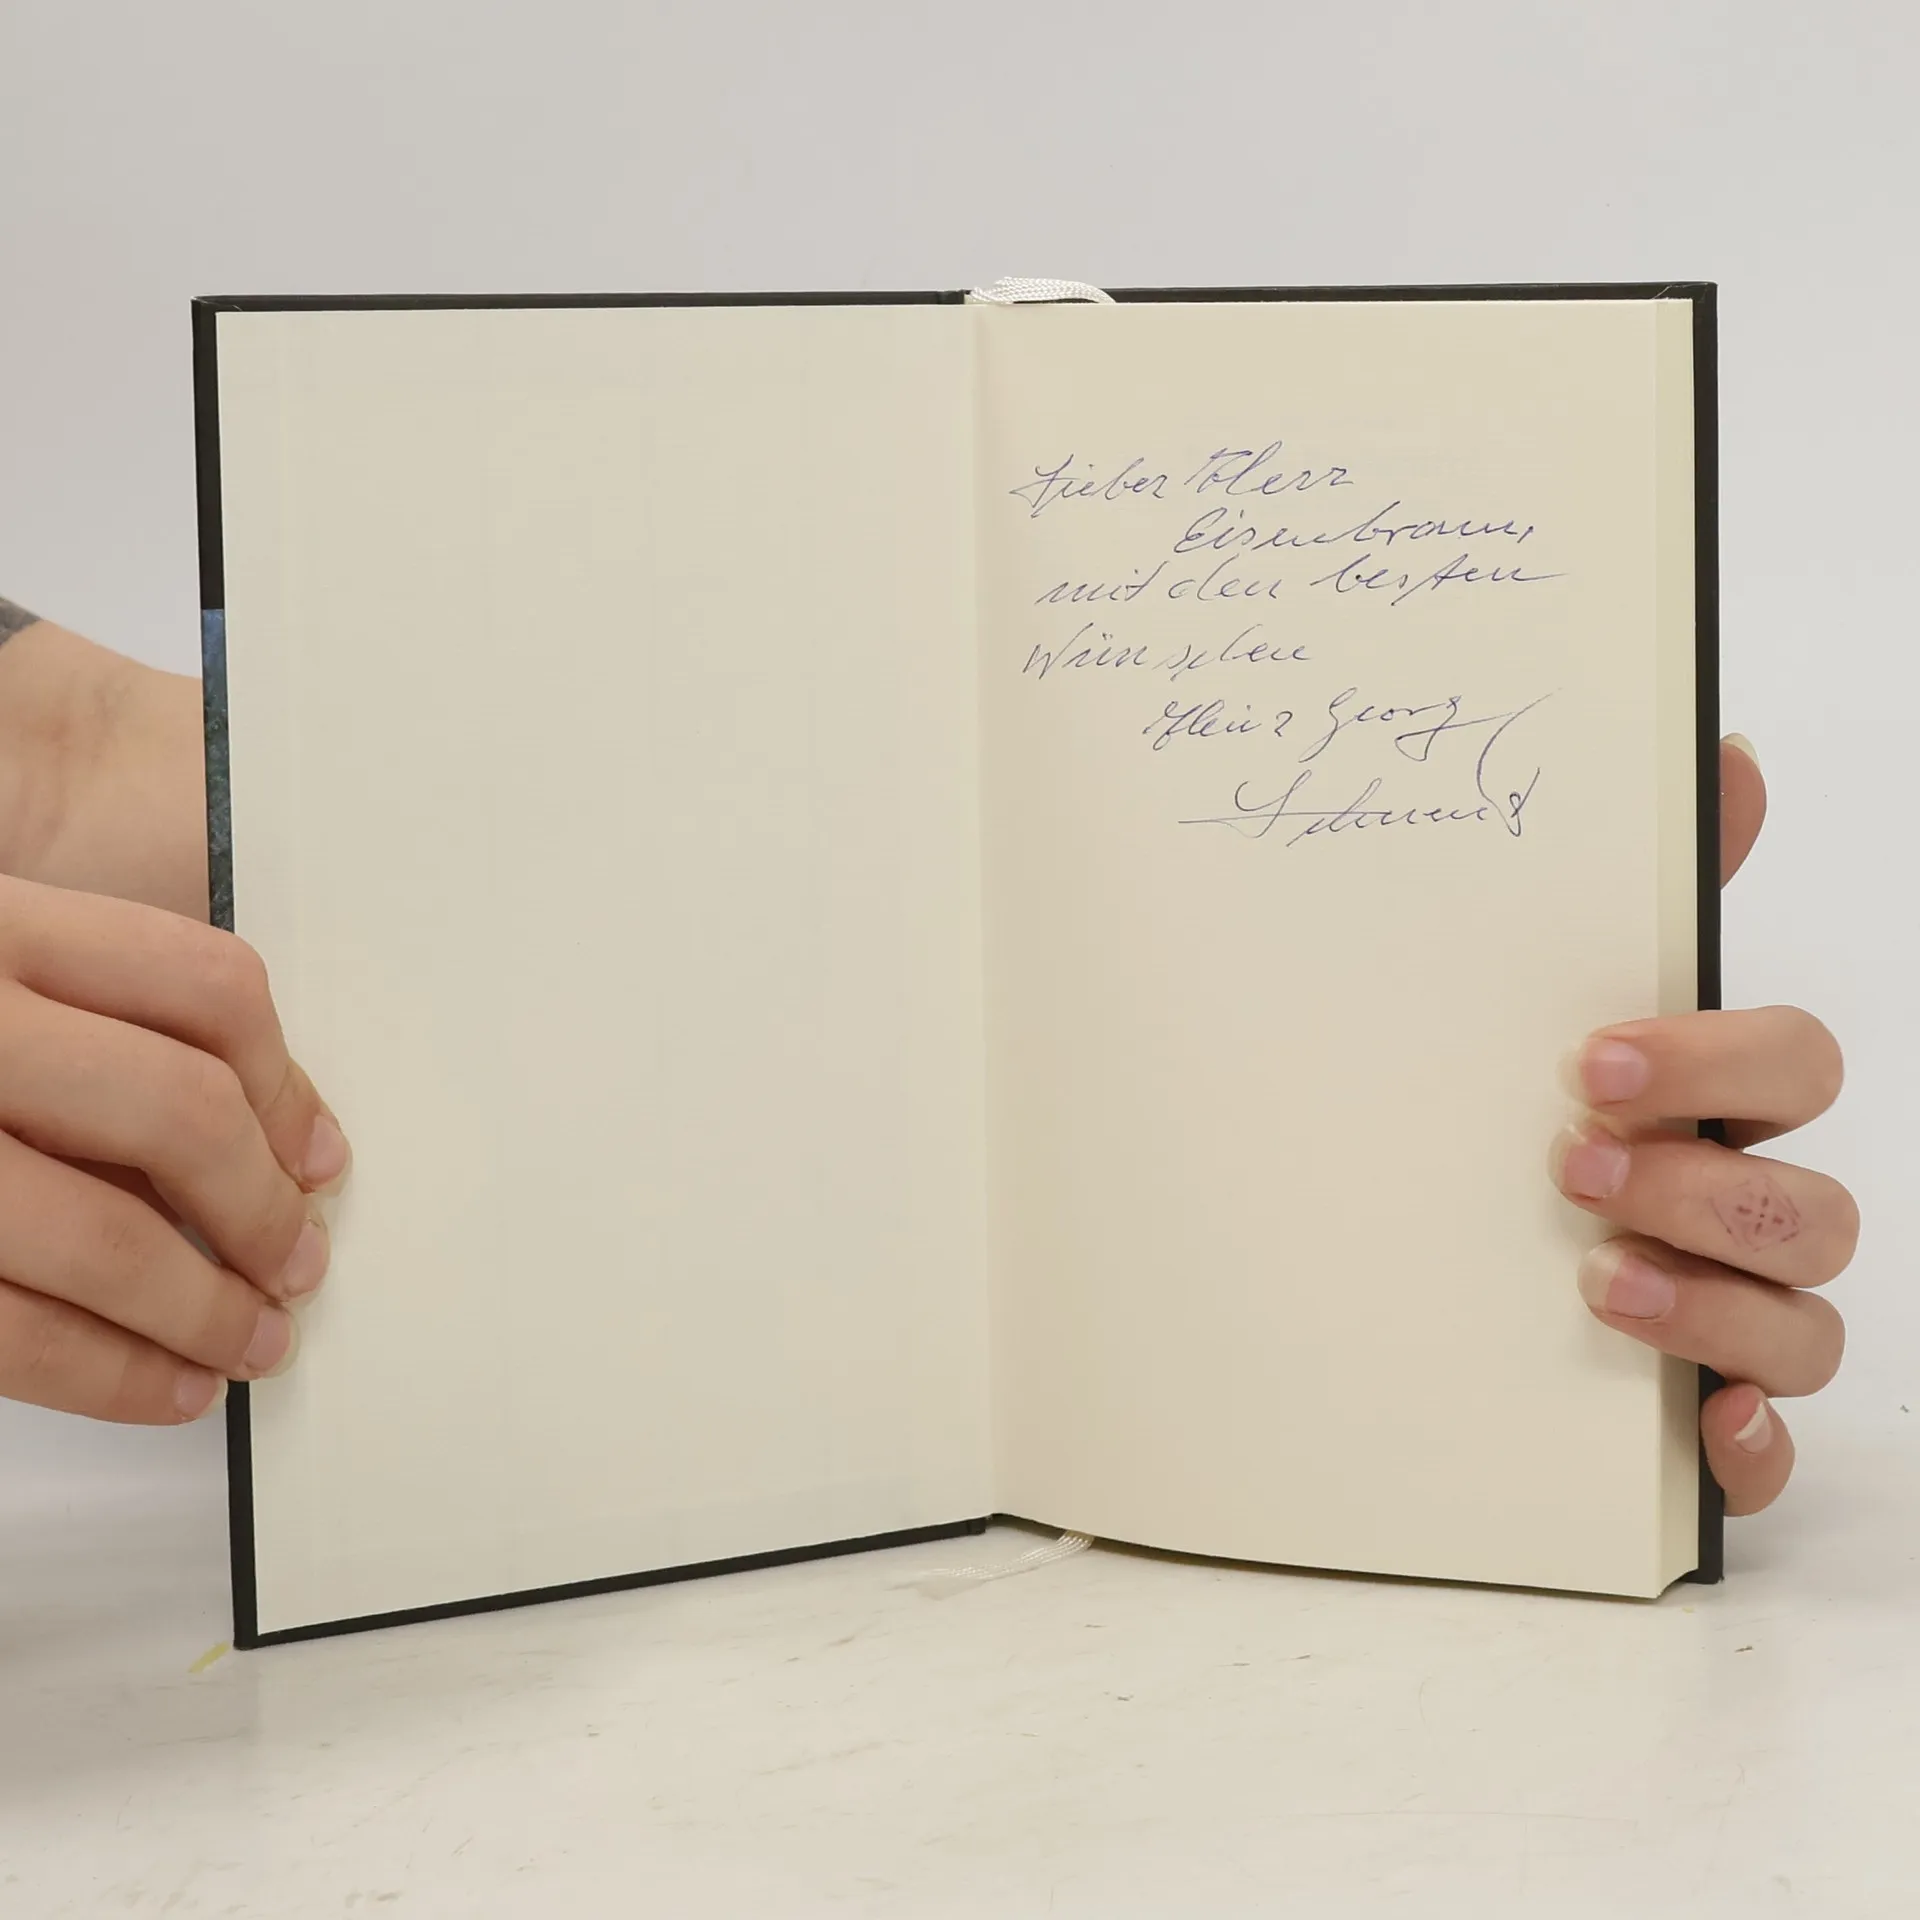 Lieber Herr
Eisenbraun,
mit den besten
Wünschen
Heinz Georg